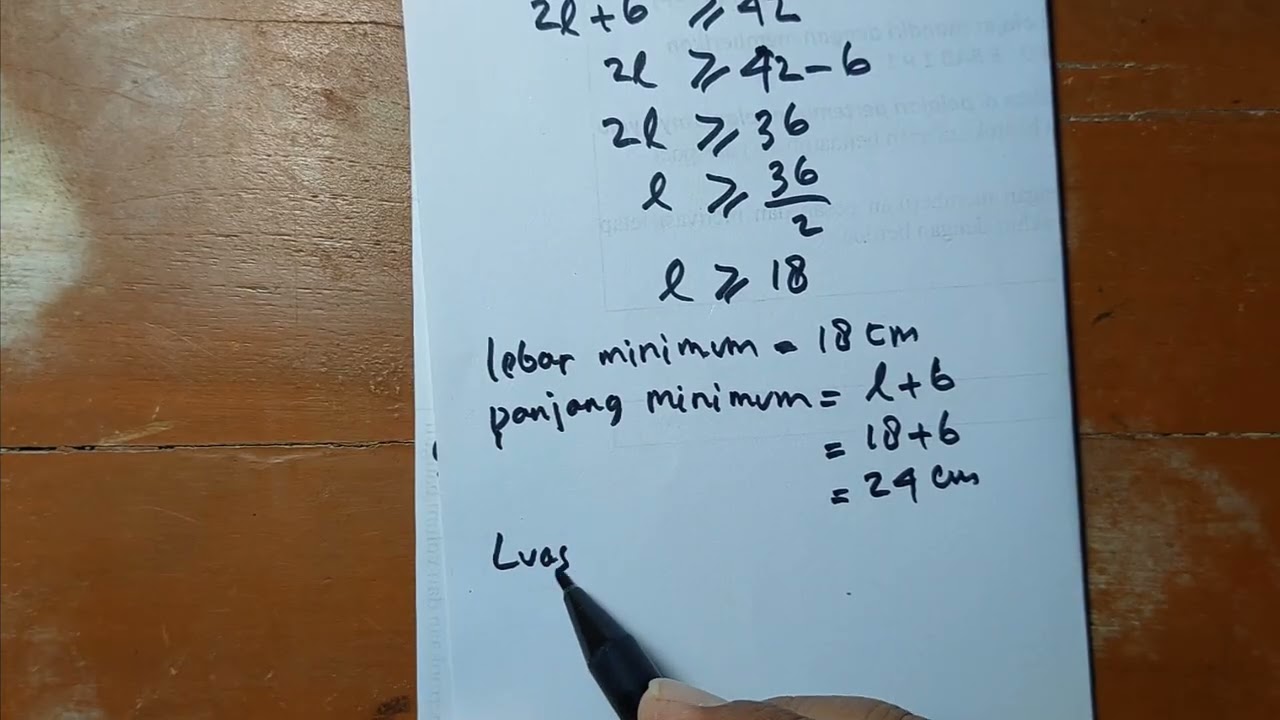 2l + 6 ⩾ 42
2l ⩾ 42 - 6
2l ⩾ 36
l ⩾ 36/2
l ⩾ 18
lebar minimum = 18 cm
panjang minimum = l + 6
= 18 + 6
= 24 cm
Luas